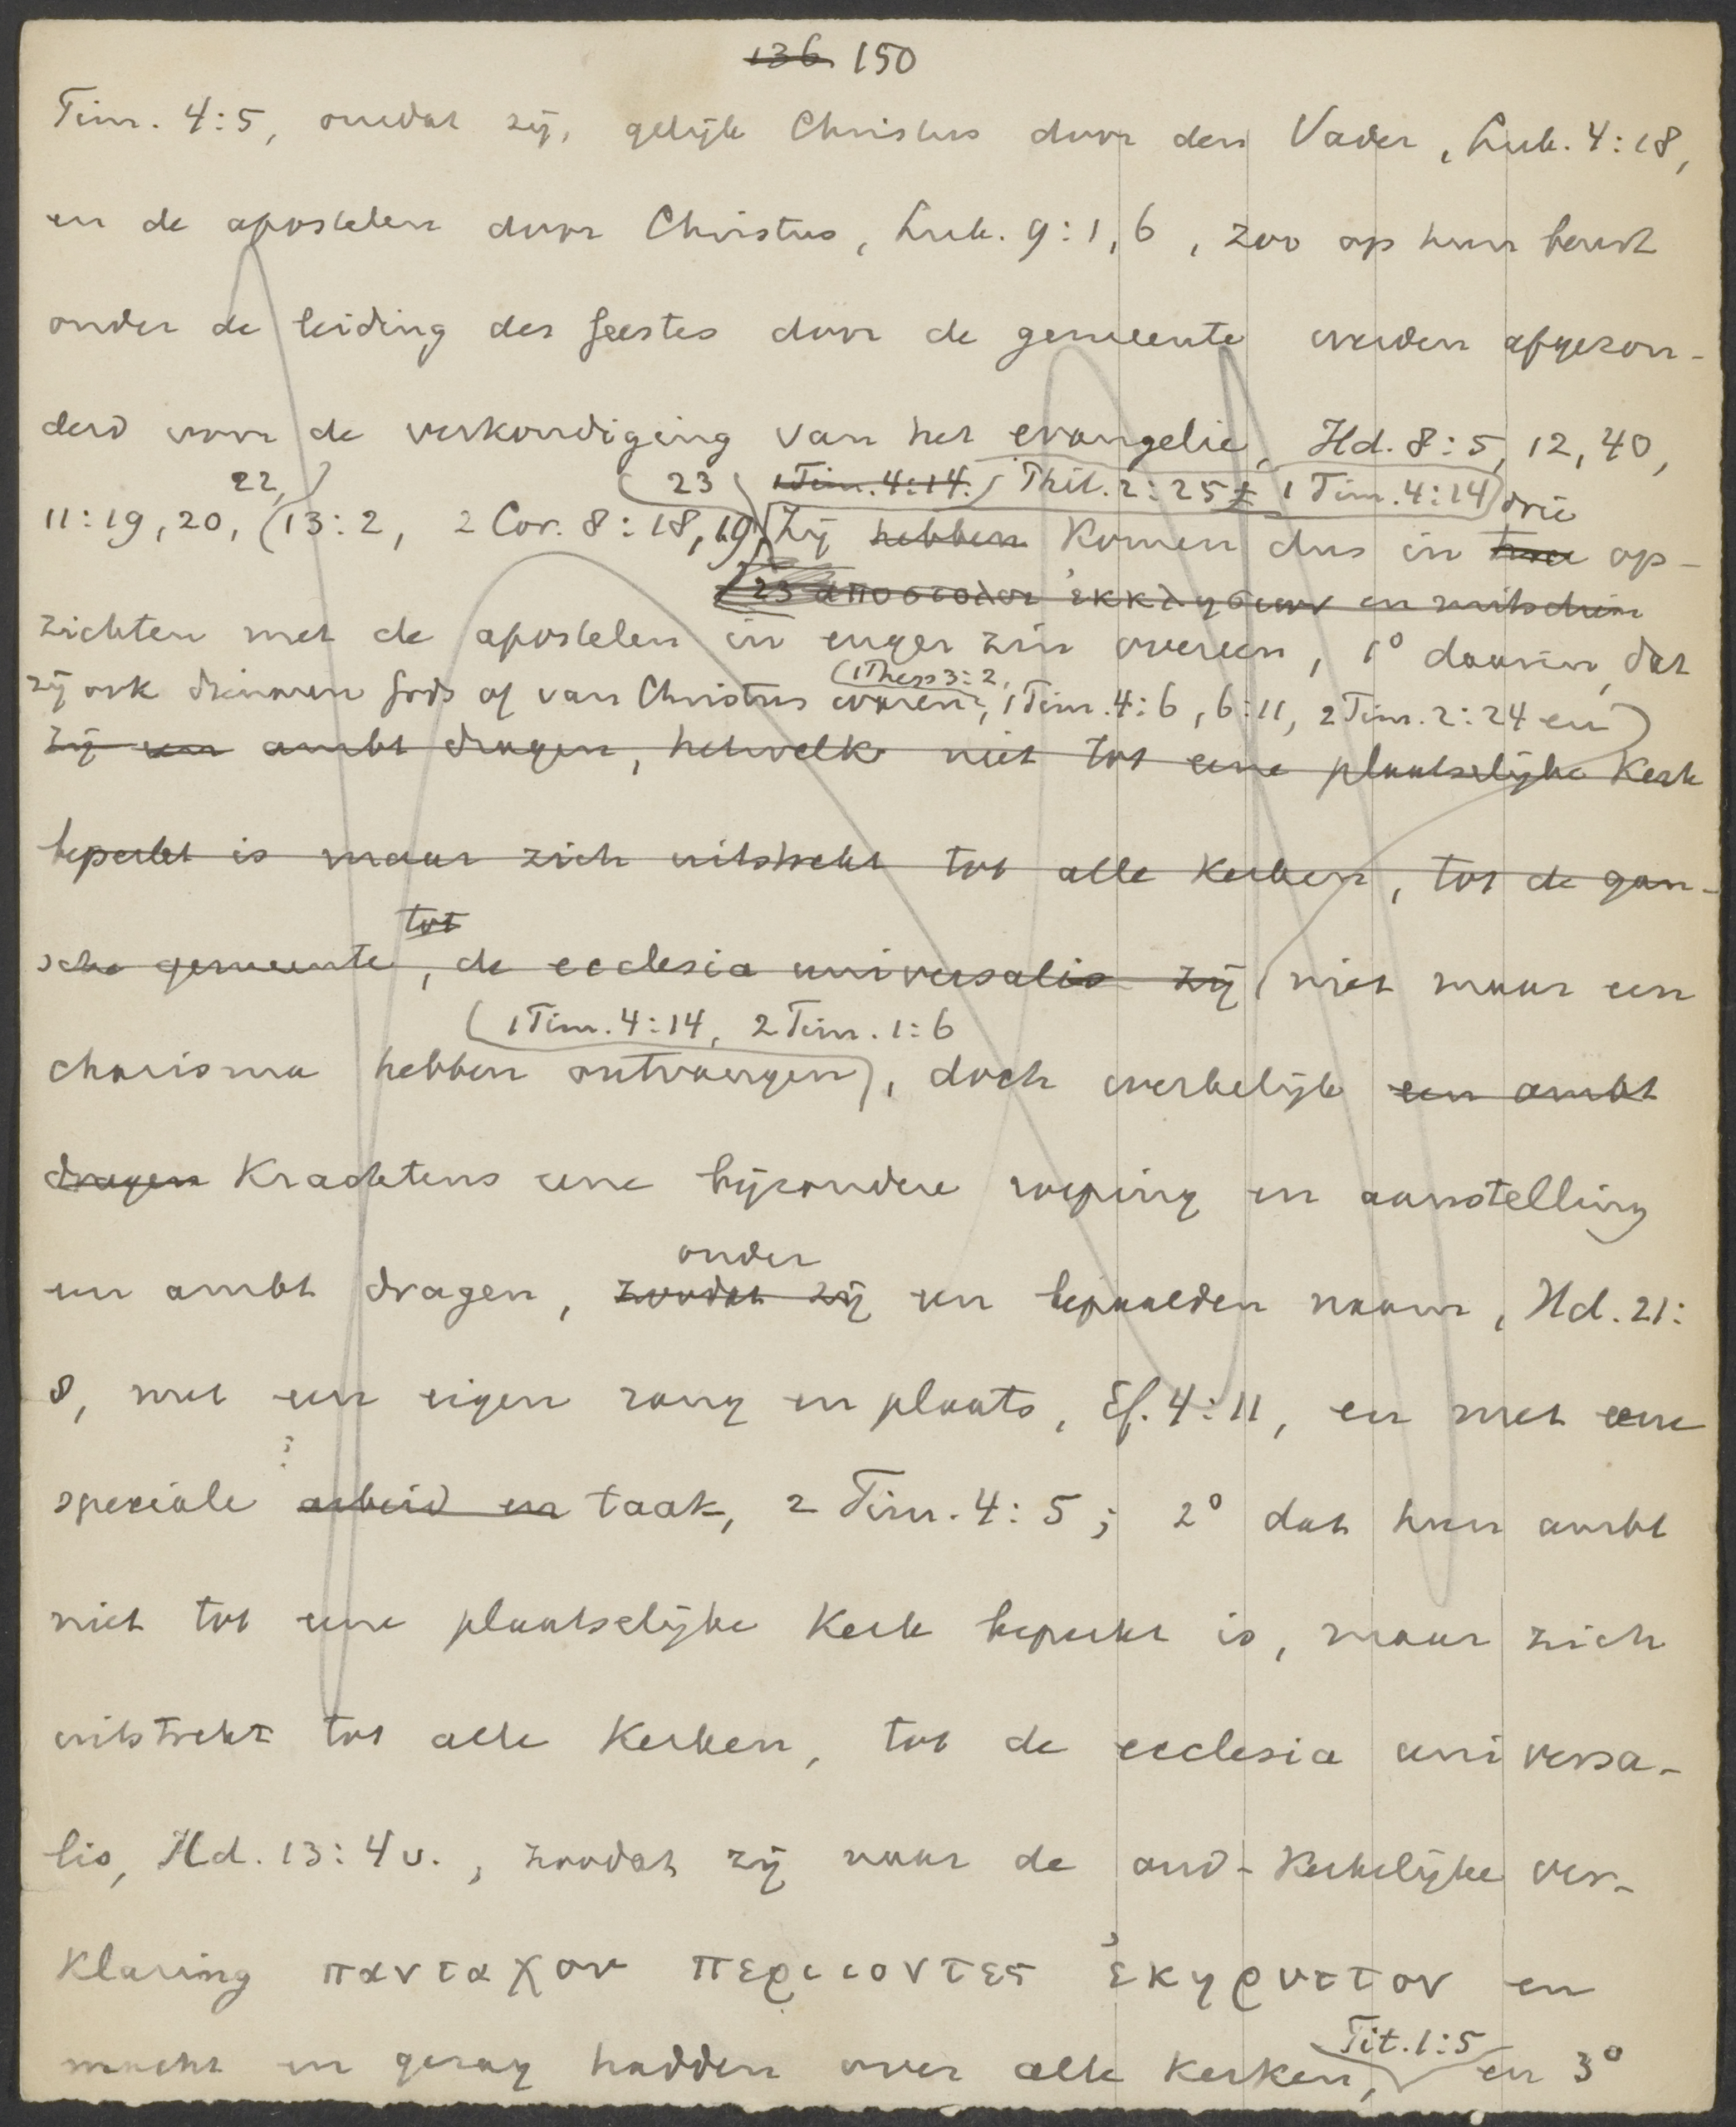 136 150
Tim. 4:5, omdat zij, gelijk Christus door den Vader, Luk. 4:18,
en de apostelen door Christus, Luk. 9:1, 6, zoo op hun beurt
onder de leiding des Geestes door de gemeente werden afgezon-
derd voor de verkondiging van het evangelie, Hd. 8:5, 12, 40,
22, 23 1 Tim. 4:14. Phil. 2:25 1 Tim. 4:14 drie
11:19, 20, 13:2, 2 Cor. 8:18, 19, Zij hebben komen dus in op-
23 ἀποστολοι ἐκκλησιων en misschien
zichten met de apostelen in enger zin overeen, 1° daarin, dat
zij ook dienaren Gods of van Christus waren, 1 Thess 3:2, 1 Tim. 4:6, 6:11, 2 Tim. 2:24 en
zij een ambt dragen, hetwelk niet tot eene plaatselijke kerk
beperkt is maar zich uitstrekt tot alle kerken, tot de gan-
tot
sche gemeente, de ecclesia universalis zij niet maar een
1 Tim. 4:14, 2 Tim. 1:6
charisma hebben ontvangen, doch werkelijk een ambt
dragen krachtens eene bijzondere roeping en aanstelling
onder
een ambt dragen, zoodat zij een bepaalden naam, Hd. 21:
8, met een eigen rang en plaats, Ef. 4:11, en met eene
speciale arbeid en taak, 2 Tim. 4:5; 2° dat hun ambt
niet tot eene plaatselijke kerk beperkt is, maar zich
uitstrekt tot alle kerken, tot de ecclesia universa-
lis, Hd. 13:4 v., zoodat zij naar de oud-kerkelijke ver-
klaring πανταχου περιιοντες ἐκηρυττον en
Tit. 1:5
macht en gezag hadden over alle kerken, en 3°